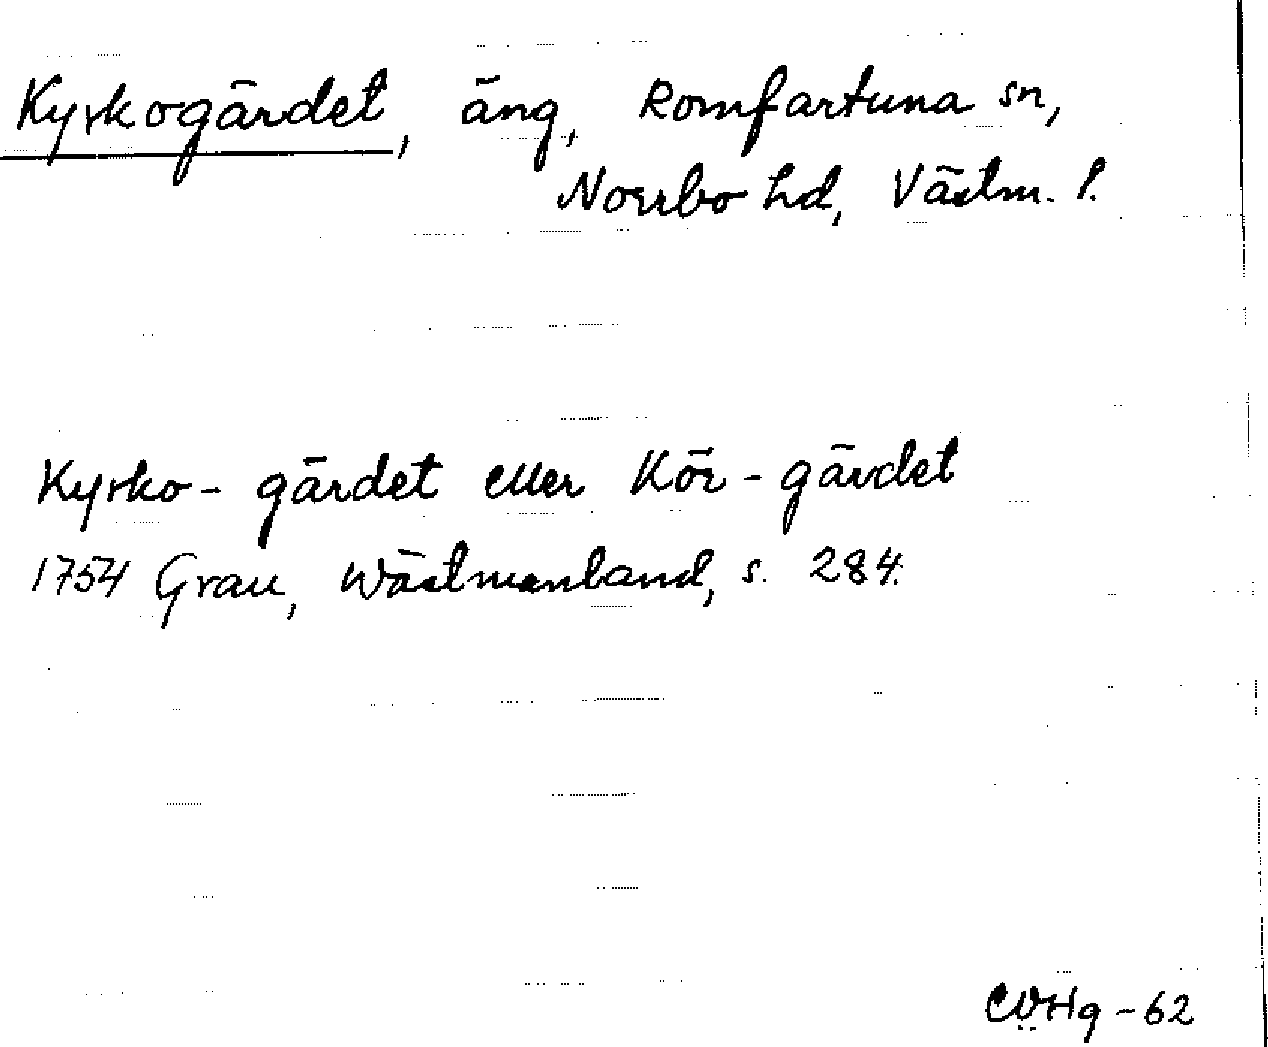 Kyrkogärdet, äng, Romfartuna sn,
Norrbo hd, Västm. l.
Kyrko-gärdet eller Kör-gärdet
1754 Grau, Wästmanland, s. 284.
-62